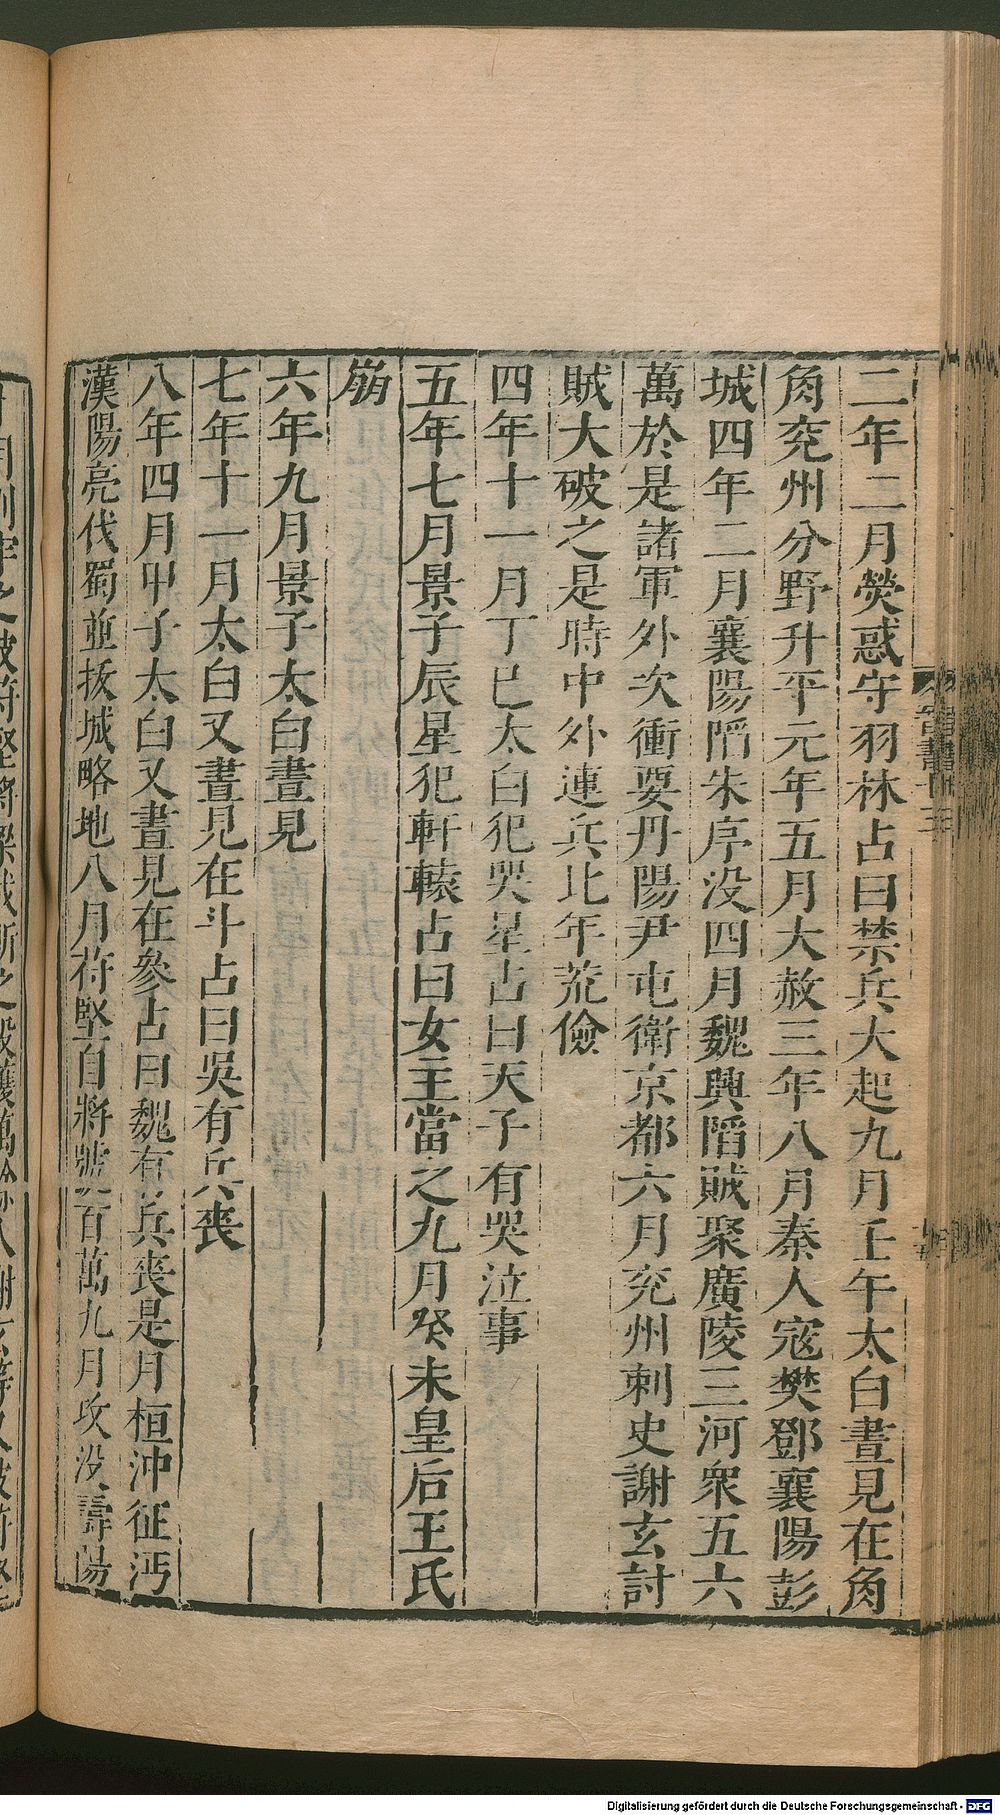 二年二月熒惑守羽林占曰禁兵大起九月壬午太白晝見在角
角兖州分野升平元年五月大赦三年八月秦人寇樊鄧襄陽彭
城四年二月襄陽陷朱序没四月魏興陷賊聚廣陵三河衆五六
萬於是諸軍外次衝要丹陽尹屯衛京都六月兖州刺史謝玄討
賊大破之是時中外連兵比年荒儉
四年十一月丁巳太白犯哭星占曰天子有哭泣事
五年七月景子辰星犯軒轅占曰女主當之九月癸未皇后王氏
崩
六年九月景子太白晝見
七年十一月太白又晝見在斗占曰吳有兵喪
八年四月甲子太白又晝見在參占曰魏有兵喪是月桓沖征沔
漢陽亮伐蜀並拔城略地八月苻堅自將號百萬九月攻没壽陽
晉書十三
Digitalisierung gefördert durch die Deutsche Forschungsgemeinschaft - DFG